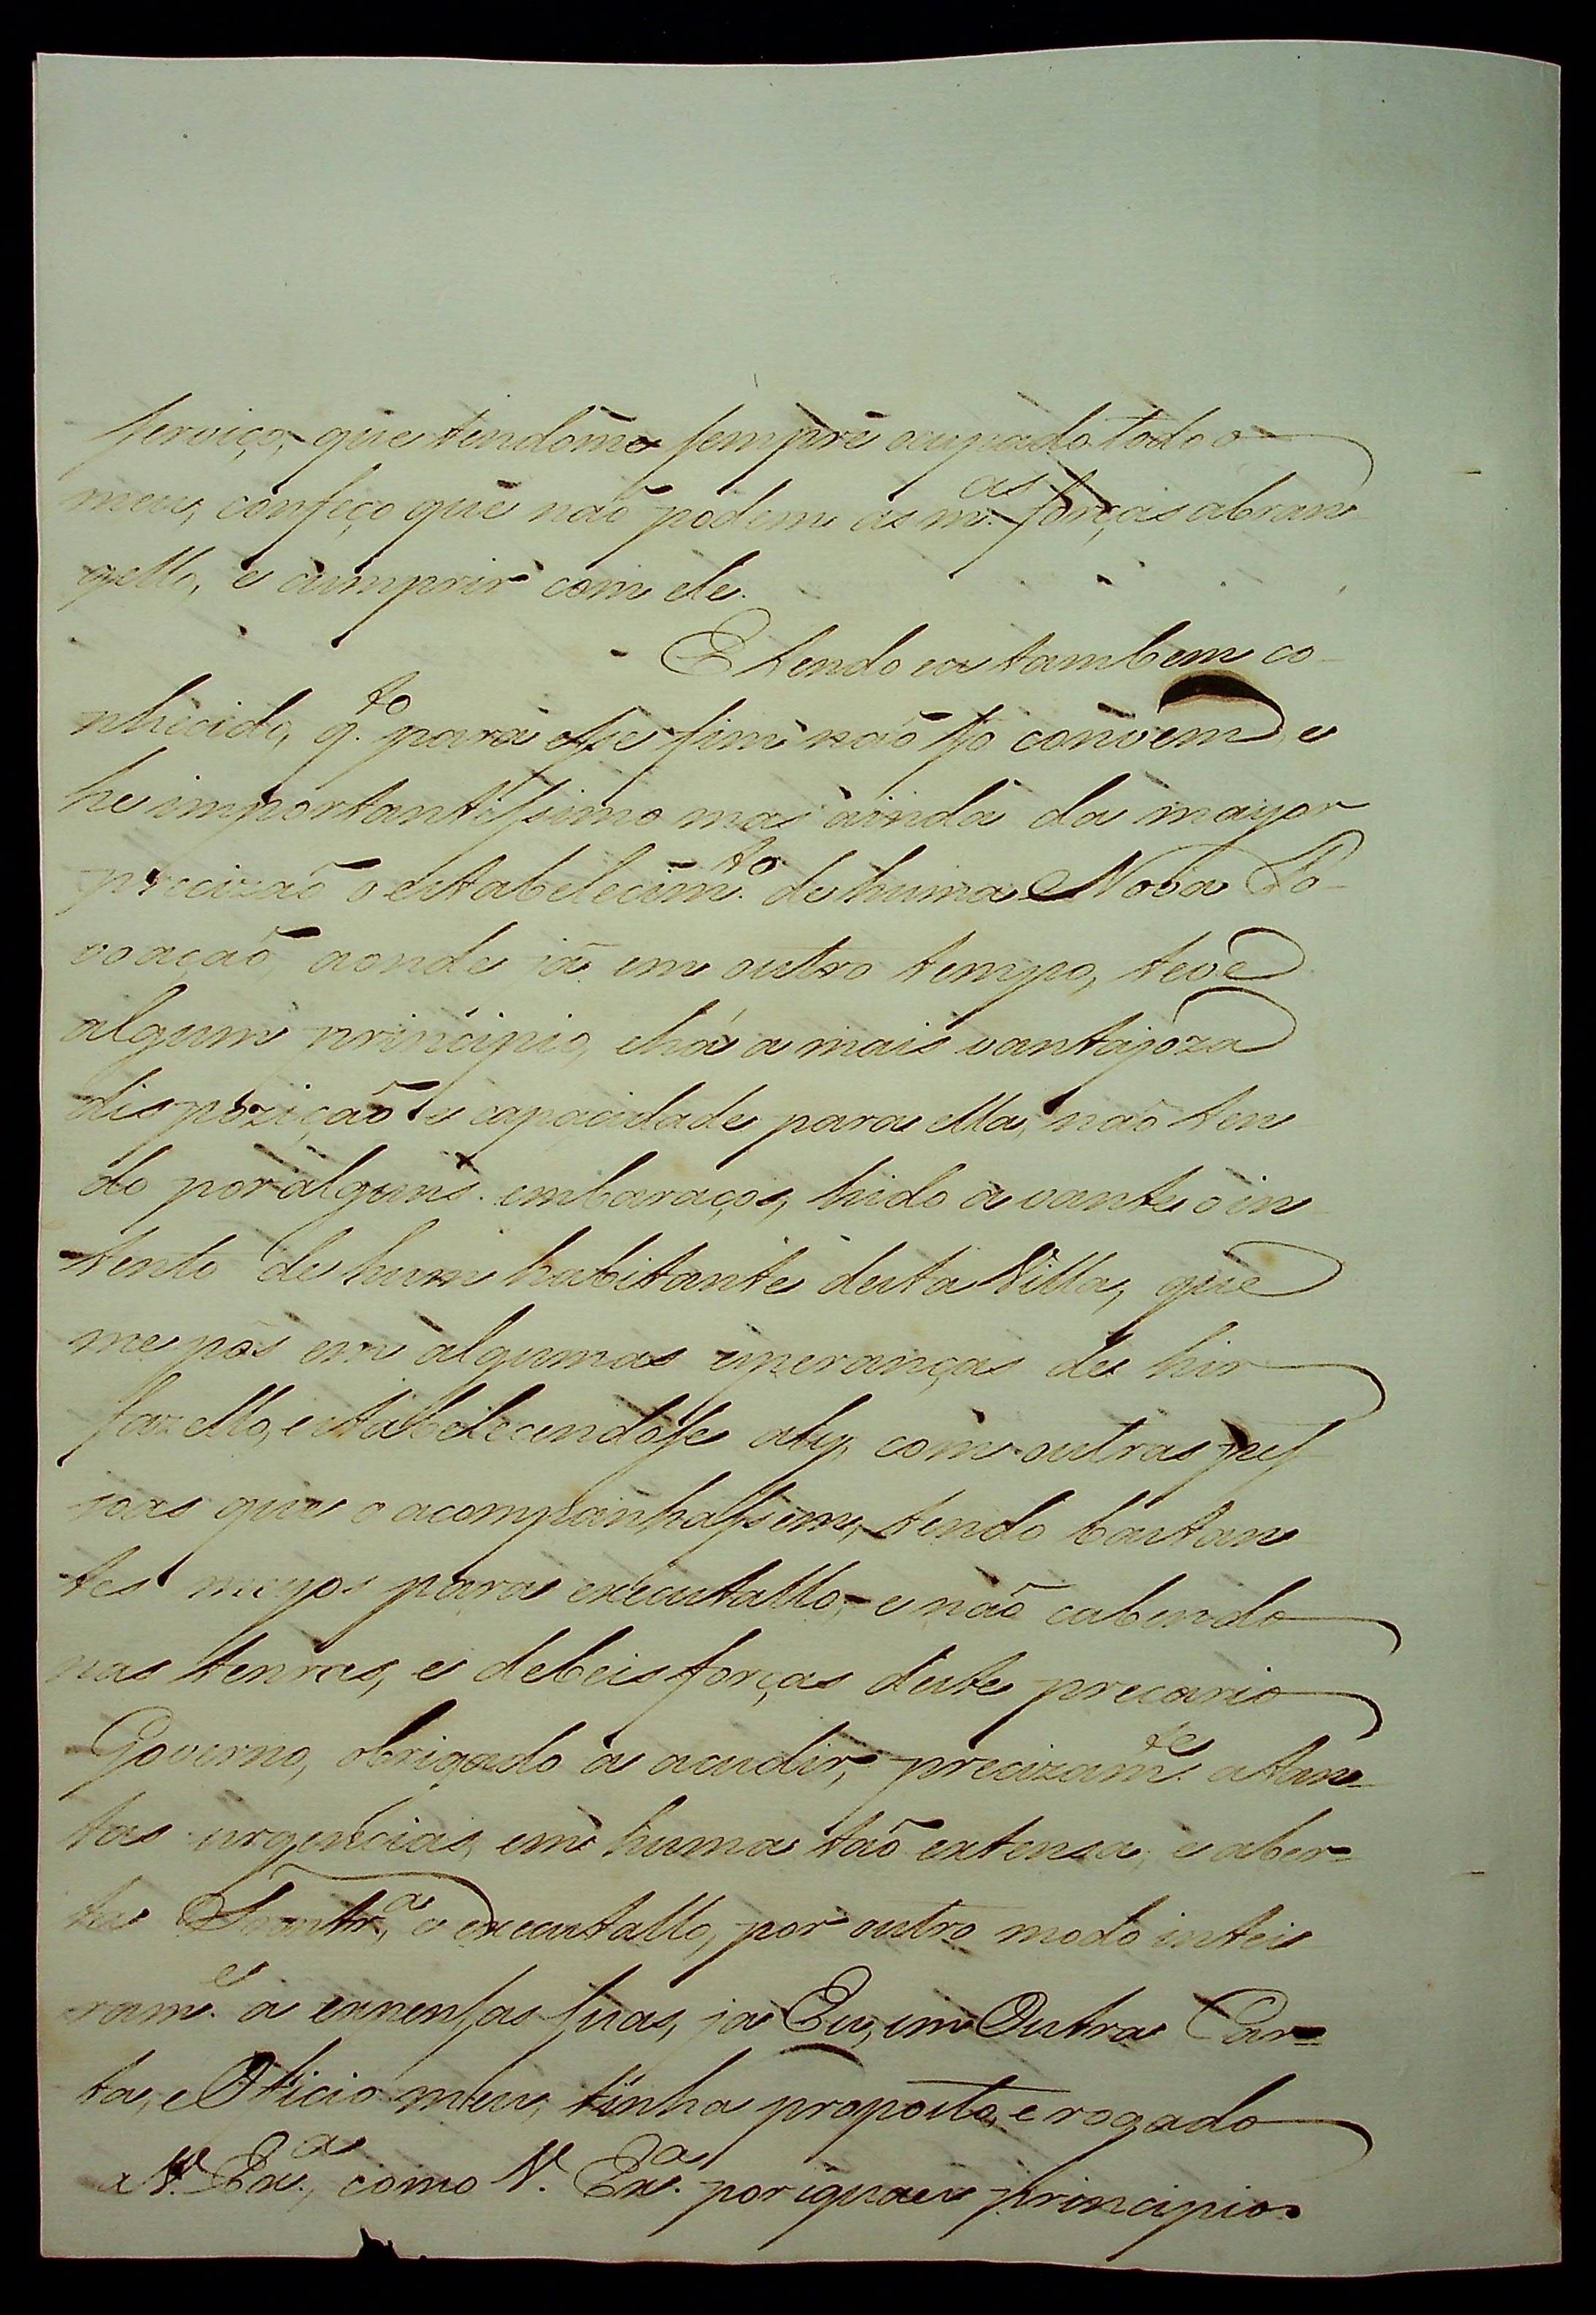 serviço, que tendome sempre ocupado todo o
meu, confeço que não podem as m.as forças abran
gello, e cumprir com ele.
E tendo eu tambem co-
nhecido, q.to para esse fim não só convem, e
he importantissimo mas ainda da mayor
precizaõ o estabelecim.to de huma Nova Po-
voaçaõ, aonde já em outro tempo, teve
algum principio, e há a mais vantajoza
dispoziçaõ e capacidade para ella, naõ ten
do por alguns embaraços, hido a vante o in
tento de hum habitante desta Villa, que
me pôs em algumas esperanças de hir
fazello, estabelecendose aly, com outras pes
soas que o acompanhassem, tendo bastan
tes meyos para executallo, e não cabendo
nas tenras, e debeis forças deste precario
Governo, obrigado a acudir, precizam.te a tan-
tas urgencias, em huma taõ extensa, e aber-
ta Front.ra, o executallo, por outro modo intei
ram.e a expensas suas, ja Eu, em Outra Car-
ta, e Oficio meu, tinha proposto, e rogado
a V. Ex.a, como V. Ex.a por iguaes principios